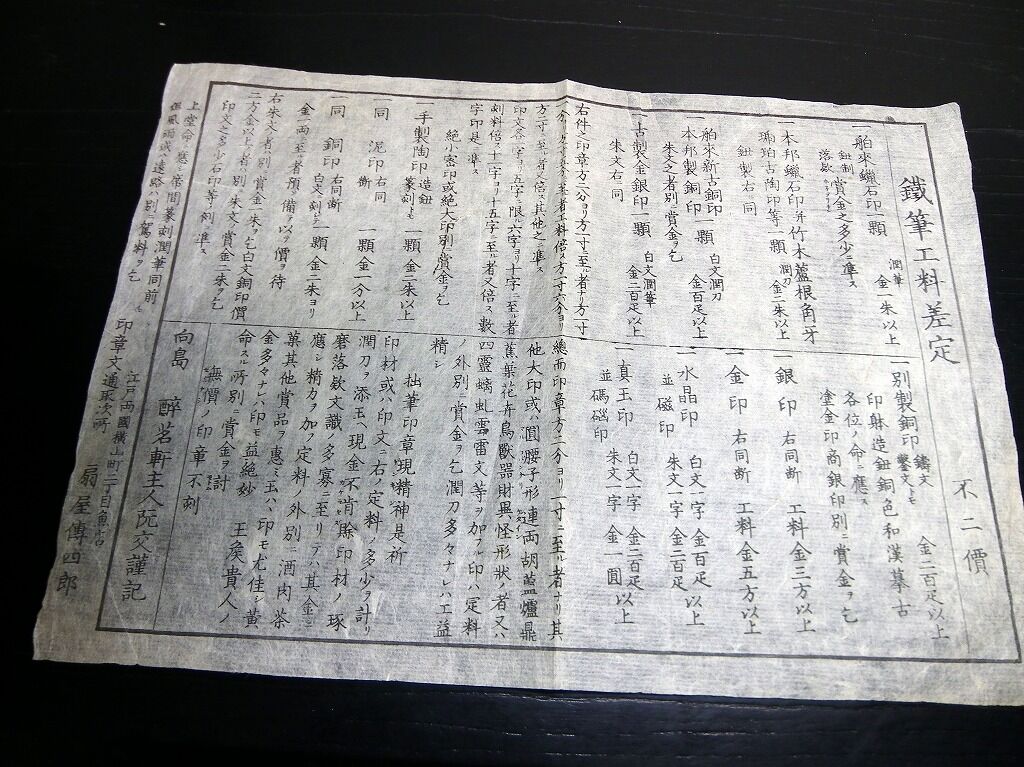 鐵筆工料差定
不二價
一舶來蠟石印一顆 潤筆 金一朱以上
鈕制 落欵 賞金之多少ニ準ス
一本邦蠟石印并竹木蘆根角牙
琥珀古陶印等一顆 潤刀 金二朱以上
鈕製右同
一舶來新古銅印 一顆 白文潤刀 金百疋以上
一本邦製銅印
朱文之者別ニ賞金ヲ乞
一古製金銀印一顆 白文潤筆 金二百疋以上
朱文右同
右件之印章方二分ヨリ方一寸ニ至ル者ナリ方一寸
方二寸ニ至ル者又倍ス其他之ニ準ス
印文各一字ヨリ五字ニ限ル六字ヨリ十字ニ至ル者
刻料倍ス十一字ヨリ十五字ニ至ル者又倍ス數
字印是ニ準ス
絶小密印或絶大印別ニ賞金ヲ乞
一手製陶印 造鈕 篆刻トモ 一顆 金二朱以上
一同 泥印 右同斷 一顆 金一分以上
一同 銅印 右同斷 白文刻トモ 一顆 金二朱ヨリ
金一両ニ至ル者預メ備ヲ以テ價ヲ待
右朱文ノ者別ニ賞金一朱ヲ乞白文銅印價
二方金以上ノ者ハ別ニ朱文ノ賞金二朱ヲ乞
印文之多少石印等ノ刻ニ準ス
上堂命ニ應シ席間篆刻潤筆同前
風雨或ハ遠路ハ別ニ駕料ヲ乞
一別製銅印 鑄文 鑿文トモ 金二百疋以上
印躰造鈕銅色和漢摹古
各位ノ命ニ應ス
塗金印商銀印別ニ賞金ヲ乞
一銀印 右同斷 工料金三方以上
一金印 右同斷 工料金五方以上
一水晶印 白文一字 金百疋以上
並磁印 朱文一字 金二百疋
一真玉印 白文一字 金二百疋以上
並碼碯印 朱文一字 金一圓以上
總而印章方二分ヨリ一寸ニ至ル者ナリ其
他大印或ハ圓腰子形連両胡盧爐鼎
蕉葉花卉鳥獸器財異怪形狀ノ者又ハ
四靈螭虬雲雷文等ヲ加フル印ハ定料
ノ外別ニ賞金ヲ乞潤刀多々ナレハ工益
精シ
拙筆印章現精神是祈
印材或ハ印文ニ右ノ定料ノ多少ヲ計リ
潤刀ヲ添玉ヘ現金不肯賒印材ノ琢
磨落欵文識ノ多寡ニ至リテハ其金ニ
應シ精力ヲ加フ定料ノ外別ニ酒肉茶
菓其他賞品ヲ惠玉ハヽ印モ尤佳シ黄
金多々ナレハ印モ益絶妙 王矦貴人ノ
命スル所別ニ賞金ヲ討
無價ノ印章不刻
向島 醉茗軒主人阮交謹記
江戸両國橫山町三丁目魚店
印章文通取次所 扇屋傳四郎